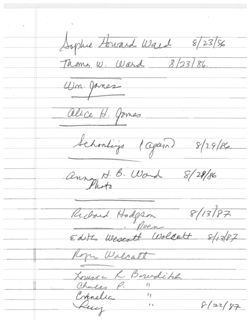 Sophie Howard Ward 8/23/86
Thomas W. Ward 8/23/86.
Wm. James
Alice H. James
Schonbergs (again) 8/29/86
Anna H. B. Ward 8/29/86
Photo
Richard Hodgson 8/13/87
Poem
Edith Wescott Walcutt 8/13/87
Roger Walcutt
Louisa R. Bowditch
Charles P. "
Cornelia "
Lucy " 8/22/87